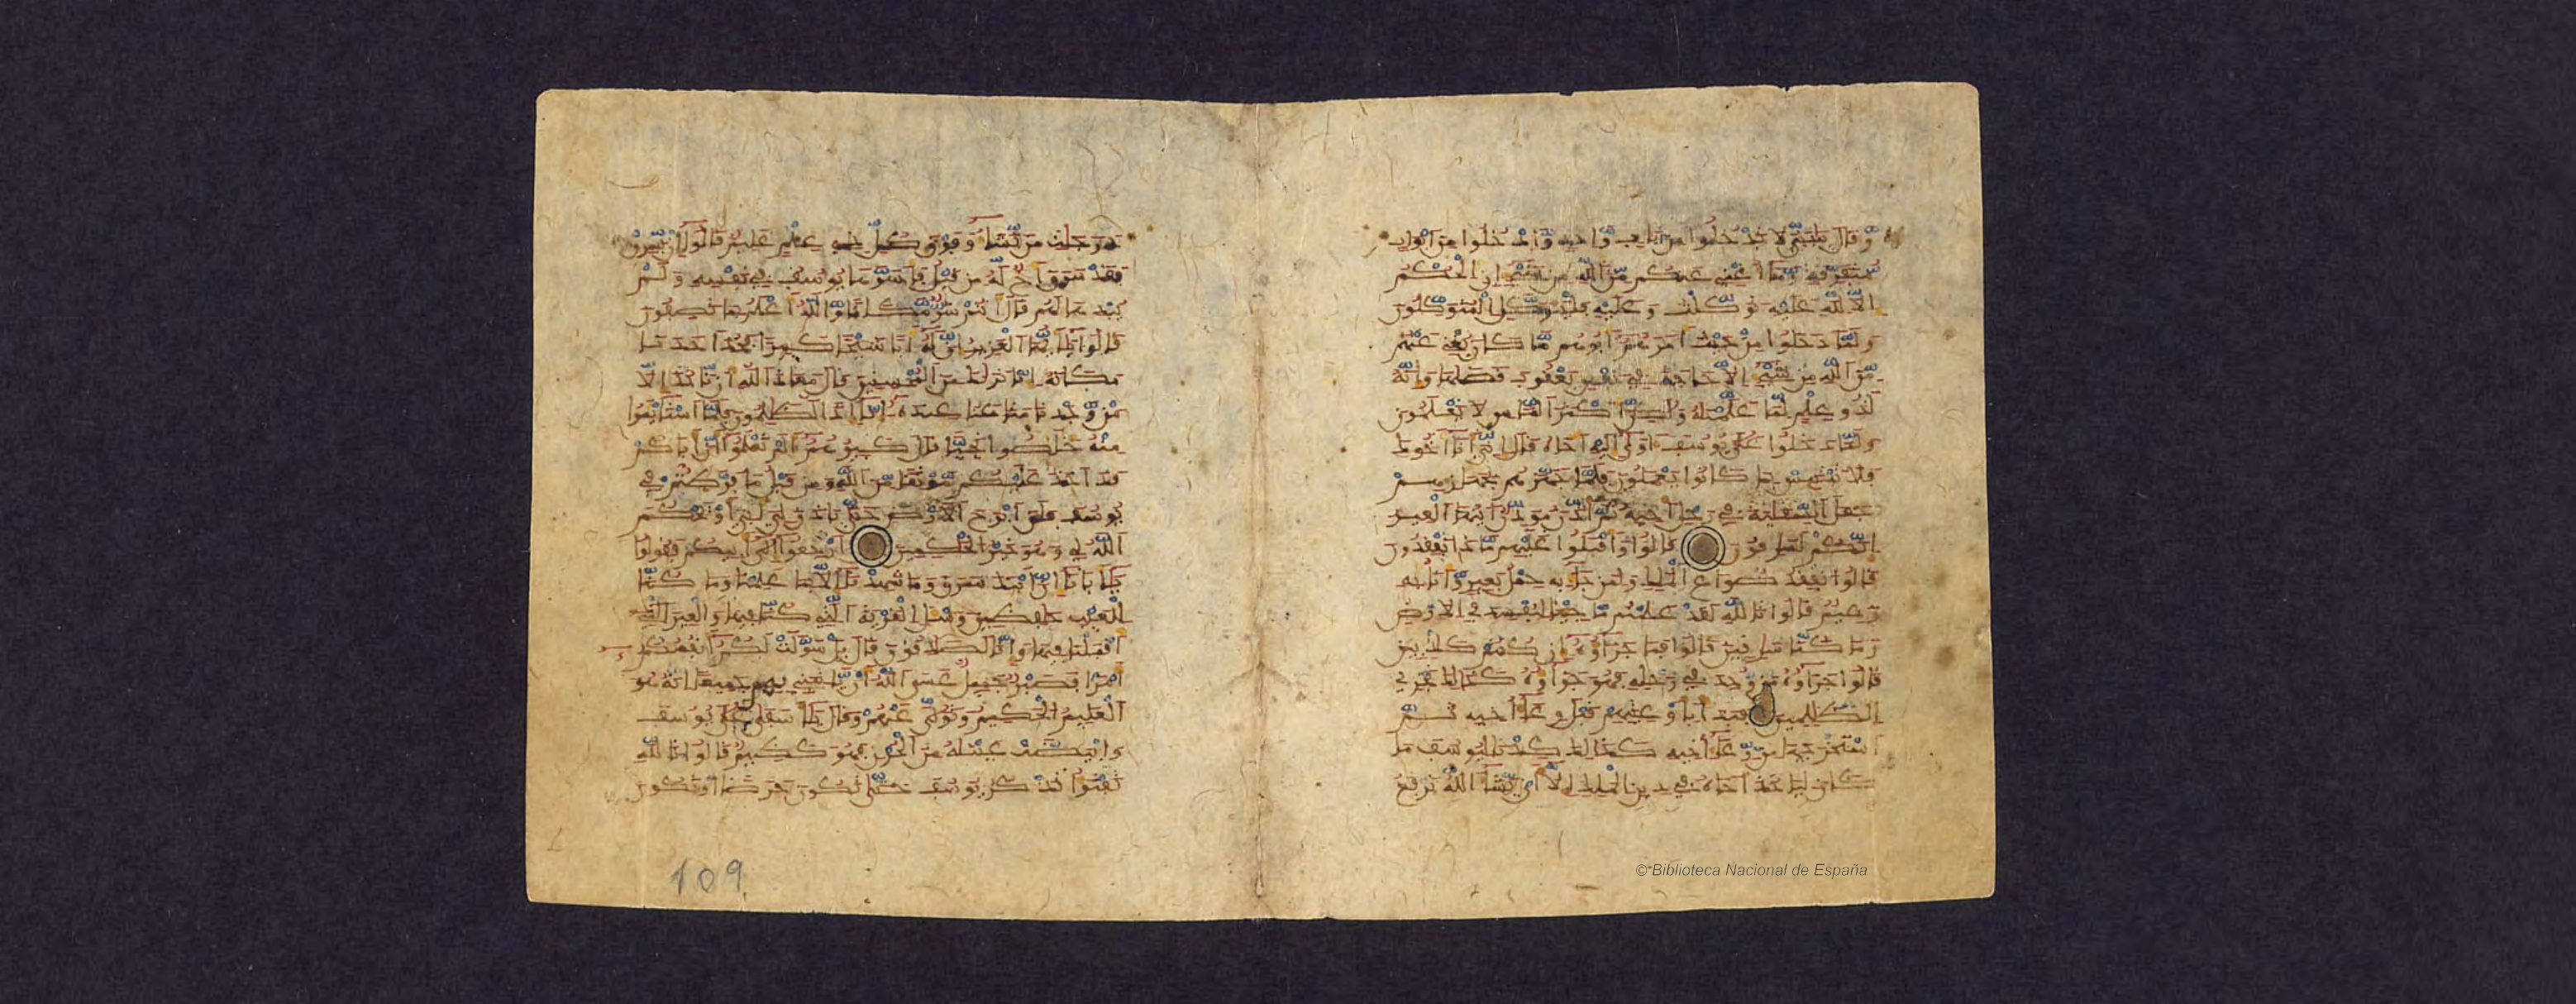 وقال يبني لا تدخلوا من باب واحد وادخلوا من ابواب
متفرقة وما اغني عنكم من الله من شيء ان الحكم
الا لله عليه توكلت وعليه فليتوكل المتوكلون
ولما دخلوا من حيث امرهم ابوهم ما كان يغني عنهم
من الله من شيء الا حاجة في نفس يعقوب قضيها وانه
لذو علم لما علمنه ولكن اكثر الناس لا يعلمون
ولما دخلوا على يوسف اوى اليه اخاه قال اني انا اخوك
فلا تبتئس بما كانوا يعملون فلما جهزهم بجهازهم
جعل السقاية في رحل اخيه ثم اذن موذن ايتها العير
انكم لسرقون قالوا واقبلوا عليهم ماذا تفقدون
قالوا نفقد صواع الملك ولمن جاء به حمل بعير وانا به
زعيم قالوا تالله لقد علمتم ما جئنا لنفسد في الارض
وما كنا سرقين قالوا فما جزاؤه ان كنتم كذبين
قالوا جزاؤه من وجد في رحله فهو جزاؤه كذلك نجزي
الظلمين فبدا باوعيتهم قبل وعاء اخيه ثم
استخرجها من وعاء اخيه كذلك كدنا ليوسف ما
كان لياخذ اخاه في دين الملك الا ان يشاء الله نرفع
درجت من نشاء وفوق كل ذي علم عليم قالوا ان يسرق
فقد سرق اخ له من قبل فاسرها يوسف في نفسه ولم
يبدها لهم قال انتم شر مكانا والله اعلم بما تصفون
قالوا يايها العزيز ان له ابا شيخا كبيرا فخذ احدنا
مكانه انا نريك من المحسنين قال معاذ الله ان ناخذ الا
من وجدنا متعنا عنده انا اذا لظلمون فلما استيئسوا
منه خلصوا نجيا قال كبيرهم الم تعلموا ان اباكم
قد اخذ عليكم موثقا من الله ومن قبل ما فرطتم في
يوسف فلن ابرح الارض حتى ياذن لي ابي او يحكم
الله لي وهو خير الحكمين ارجعوا الى ابيكم فقولوا
يابانا ان ابنك سرق وما شهدنا الا بما علمنا وما كنا
للغيب حفظين وسئل القرية التي كنا فيها والعير التي
اقبلنا فيها وانا لصدقون قال بل سولت لكم انفسكم
امرا فصبر جميل عسى الله ان ياتيني بهم جميعا انه هو
العليم الحكيم وتولى عنهم وقال ياسفى على يوسف
وابيضت عينه من الحزن فهو كظيم قالوا تالله
تفتؤا تذكر يوسف حتى تكون حرضا او تكون
109
© Biblioteca Nacional de España